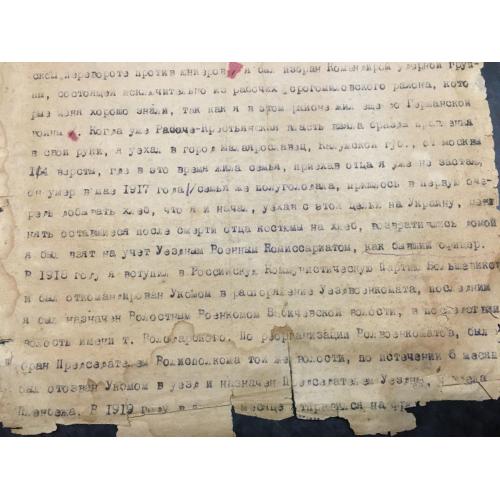 ском перевороте против юнкеров, я был избран Командиром ударной груп-
пы, состоящей исключительно из рабочих Дорогомиловского района, кото
рые меня хорошо знали, так как я в этом районе жил еще до Германской
войны. Когда уже Рабоче-Крестьянская власть взяла бразды правления
в свои руки, я уехал в город Малоярославец, Калужской губ., от Москвы
114 версты, где в это время жила семья, приехав отца я уже не застал,
он умер в мае 1917 года, семья же полуголодала, пришлось в первую оче-
редь добывать хлеб, что я и начал, уехав с этой целью на Украину, меня
нять оставшиеся после смерти отца костюмы на хлеб, возвратившись домой
я был взят на учет Уездным Военным Комиссариатом, как бывший офицер.
В 1918 году я вступил в Российскую Коммунистическую Партию Большевиков
и был откомандирован Укомом в распоряжение Уездвоенкомата, последним
я был назначен Волостным Военкомом волости, в последствии
волость имени т. Володарского. По реорганизации Волвоенкоматов, был
бран Председателем Волисполкома той же волости, по истечении 6 месяц
был отозван Укомом в уезд и назначен Председателем Уездн.
Пленбежа. В 1919 году в месяце отправился на фр